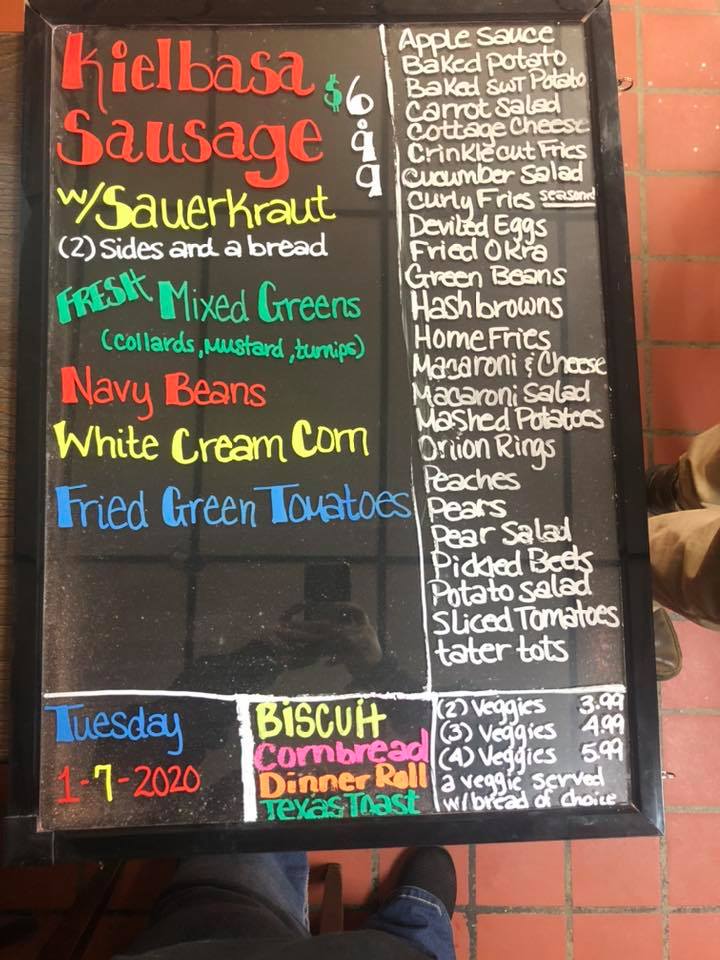 Kielbasa
Sausage
$6.99
w/Sauerkraut
(2) Sides and a bread
FRESH Mixed Greens
(collards, mustard, turnips)
Navy Beans
White Cream Corn
Fried Green Tomatoes
Apple Sauce
Baked Potato
Baked SWT Potato
Carrot Salad
Cottage Cheese
Crinkle cut Fries
Cucumber Salad
Curly Fries seasoned
Deviled Eggs
Fried Okra
Green Beans
Hashbrowns
Home Fries
Macaroni & Cheese
Macaroni Salad
Mashed Potatoes
Onion Rings
Peaches
Pears
Pear Salad
Pickled Beets
Potato Salad
Sliced Tomatoes
tater tots
Tuesday
1-7-2020
BiSCUit
Cornbread
Dinner Roll
Texas Toast
(2) Veggies 3.99
(3) Veggies 4.99
(4) Veggies 5.99
a veggie served
w/bread of choice